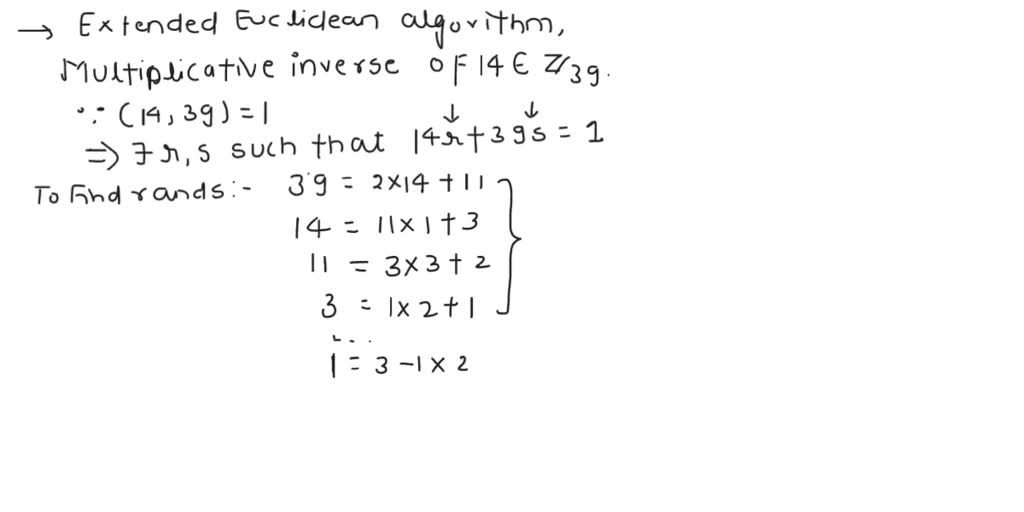 → Extended Euclidean algorithm,
Multiplicative inverse of 14 ∈ Z/39.
∵ (14, 39) = 1
⇒ ∃ r, s such that 14r + 39s = 1
To find r and s :- 39 = 2×14 + 11
14 = 11×1 + 3
11 = 3×3 + 2
3 = 1×2 + 1
1 = 3 - 1×2